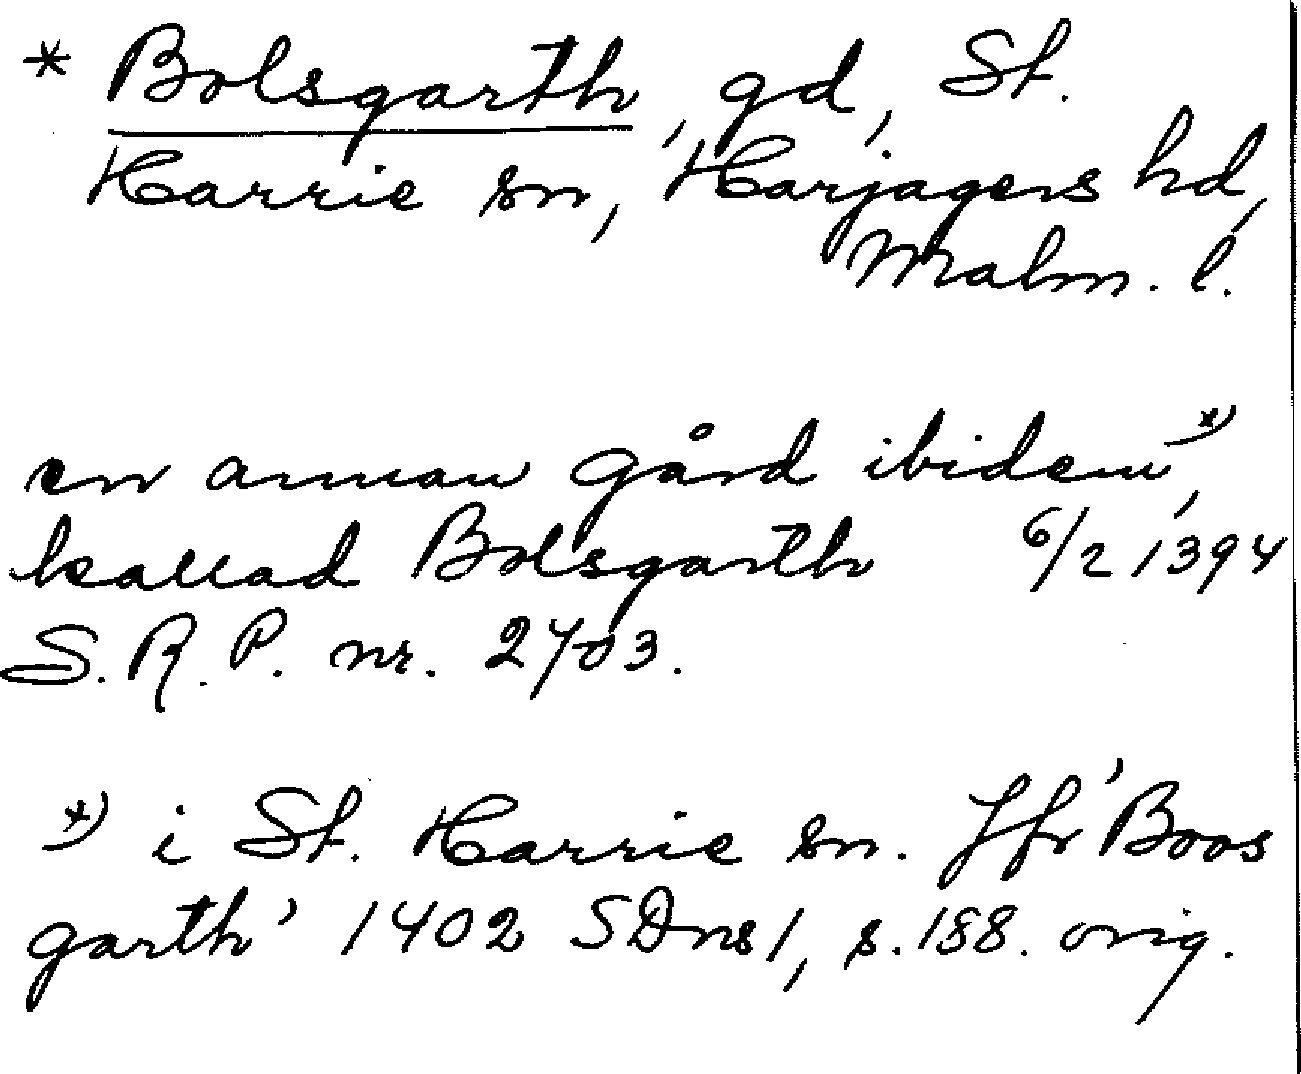 * Bolsgarth, gd, St.
Harrie sn, Harjagers hd,
Malm. l.
en annan gård ibidem *),
kallad Bolsgarth 6/2 1394
S.R.P. nr. 2703.
*) i St. Harrie sn. Jfr 'Boos
garth' 1402 SDns1, s. 188. orig.